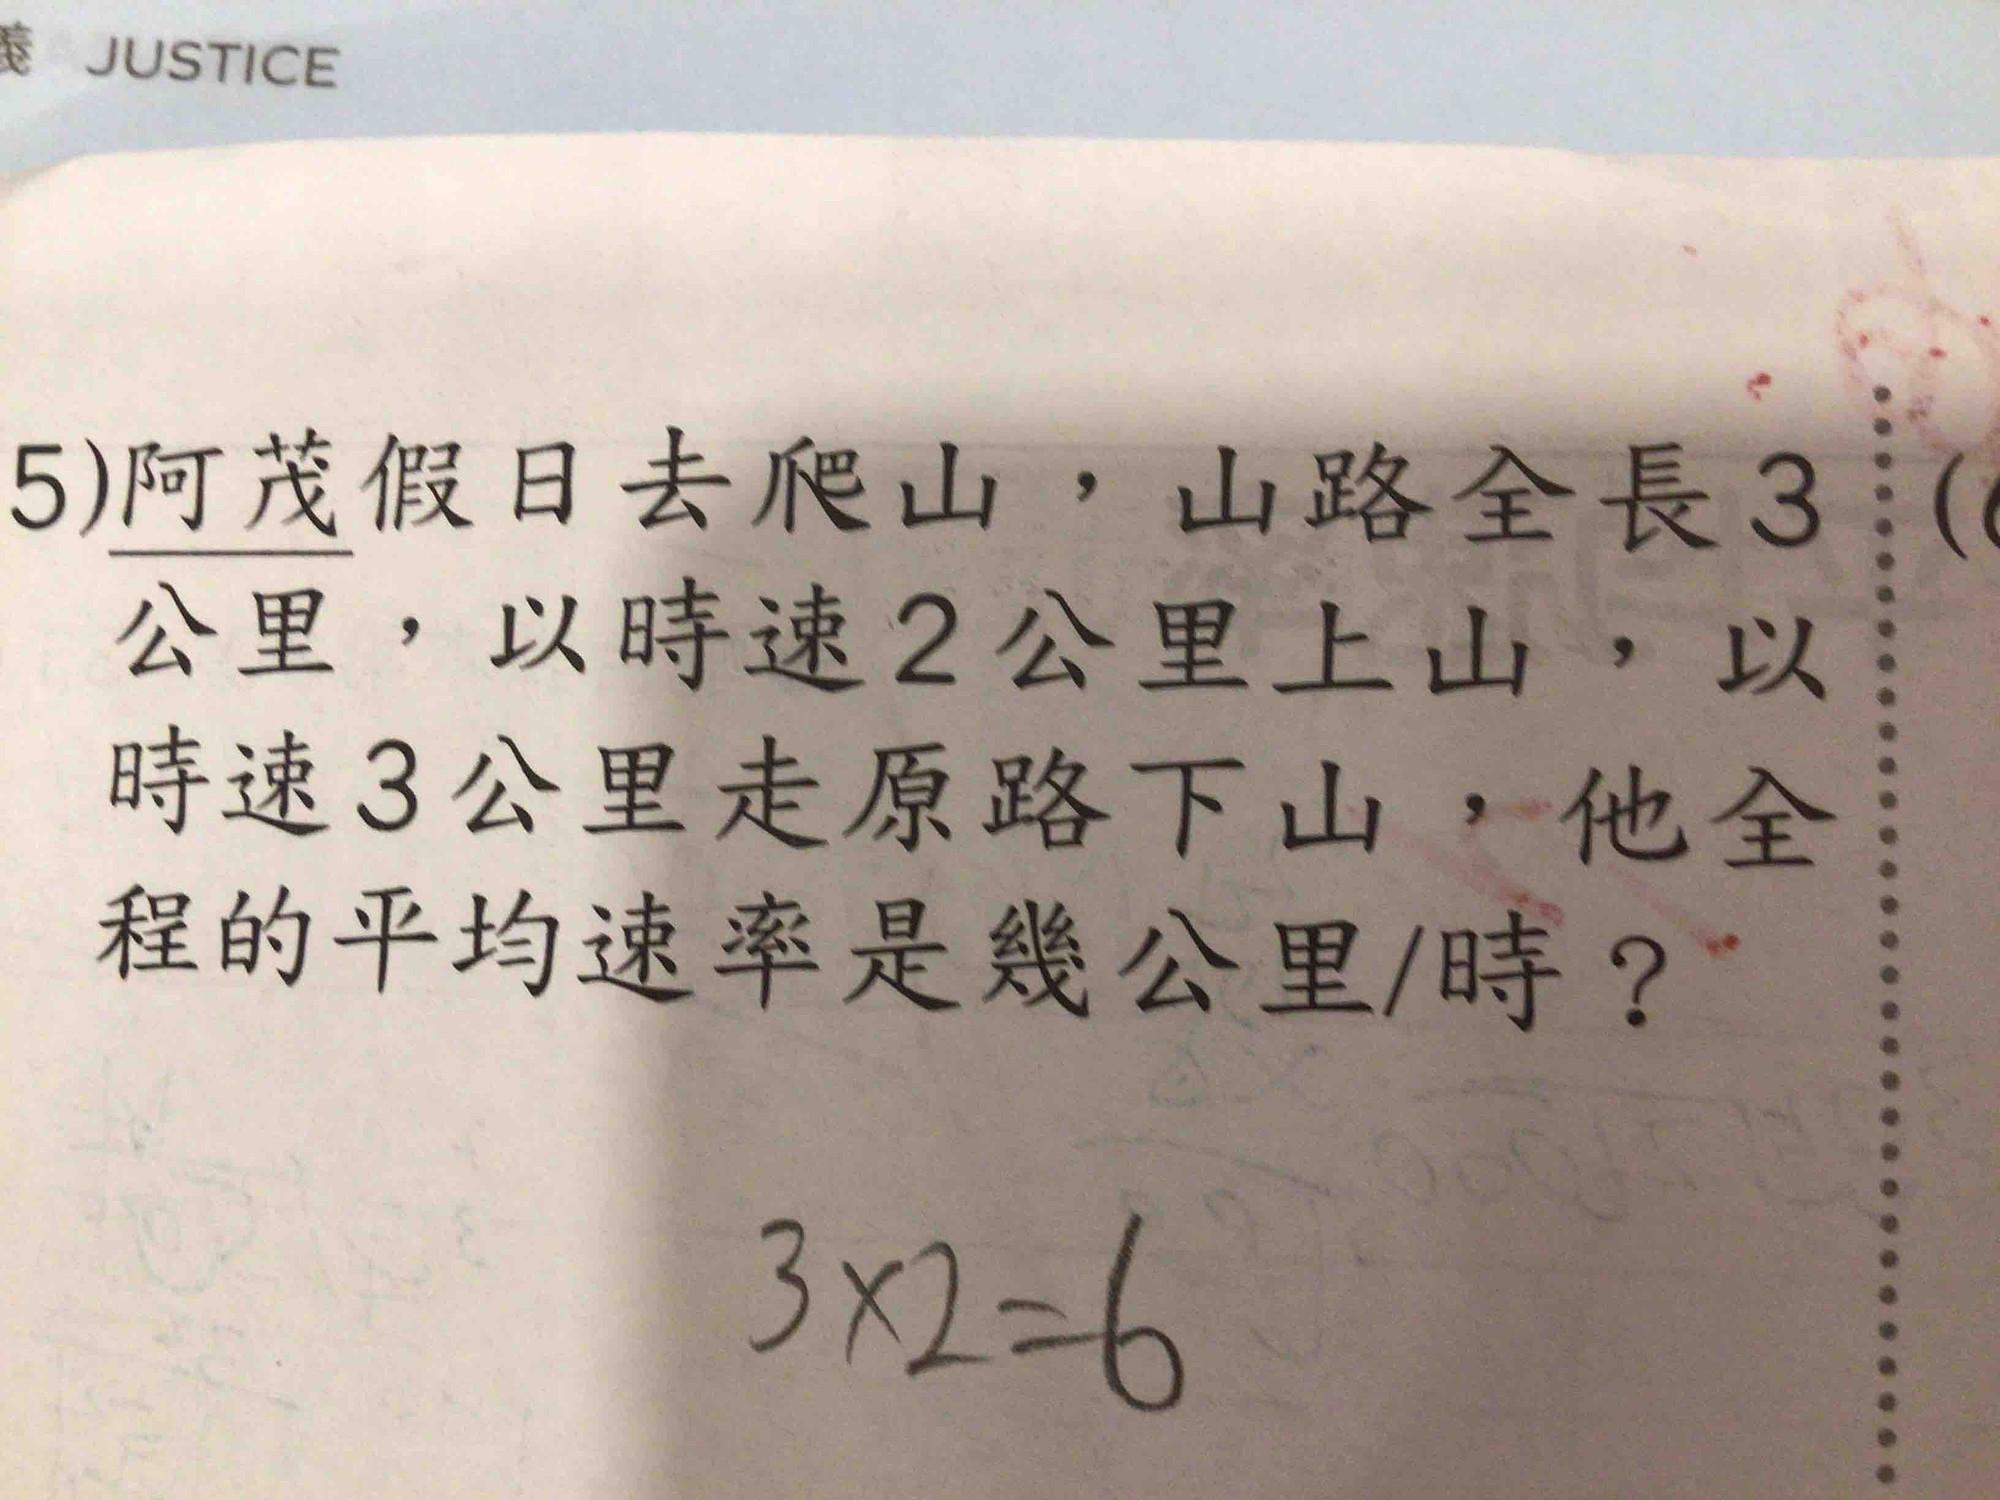 義 JUSTICE
5)阿茂假日去爬山，山路全長3
公里，以時速2公里上山，以
時速3公里走原路下山，他全
程的平均速率是幾公里/時？
3×2=6